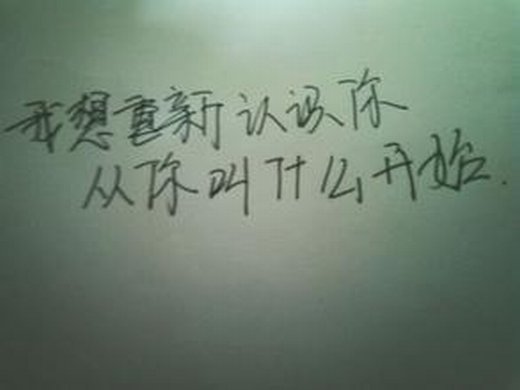 我想重新认识你
从你叫什么开始.